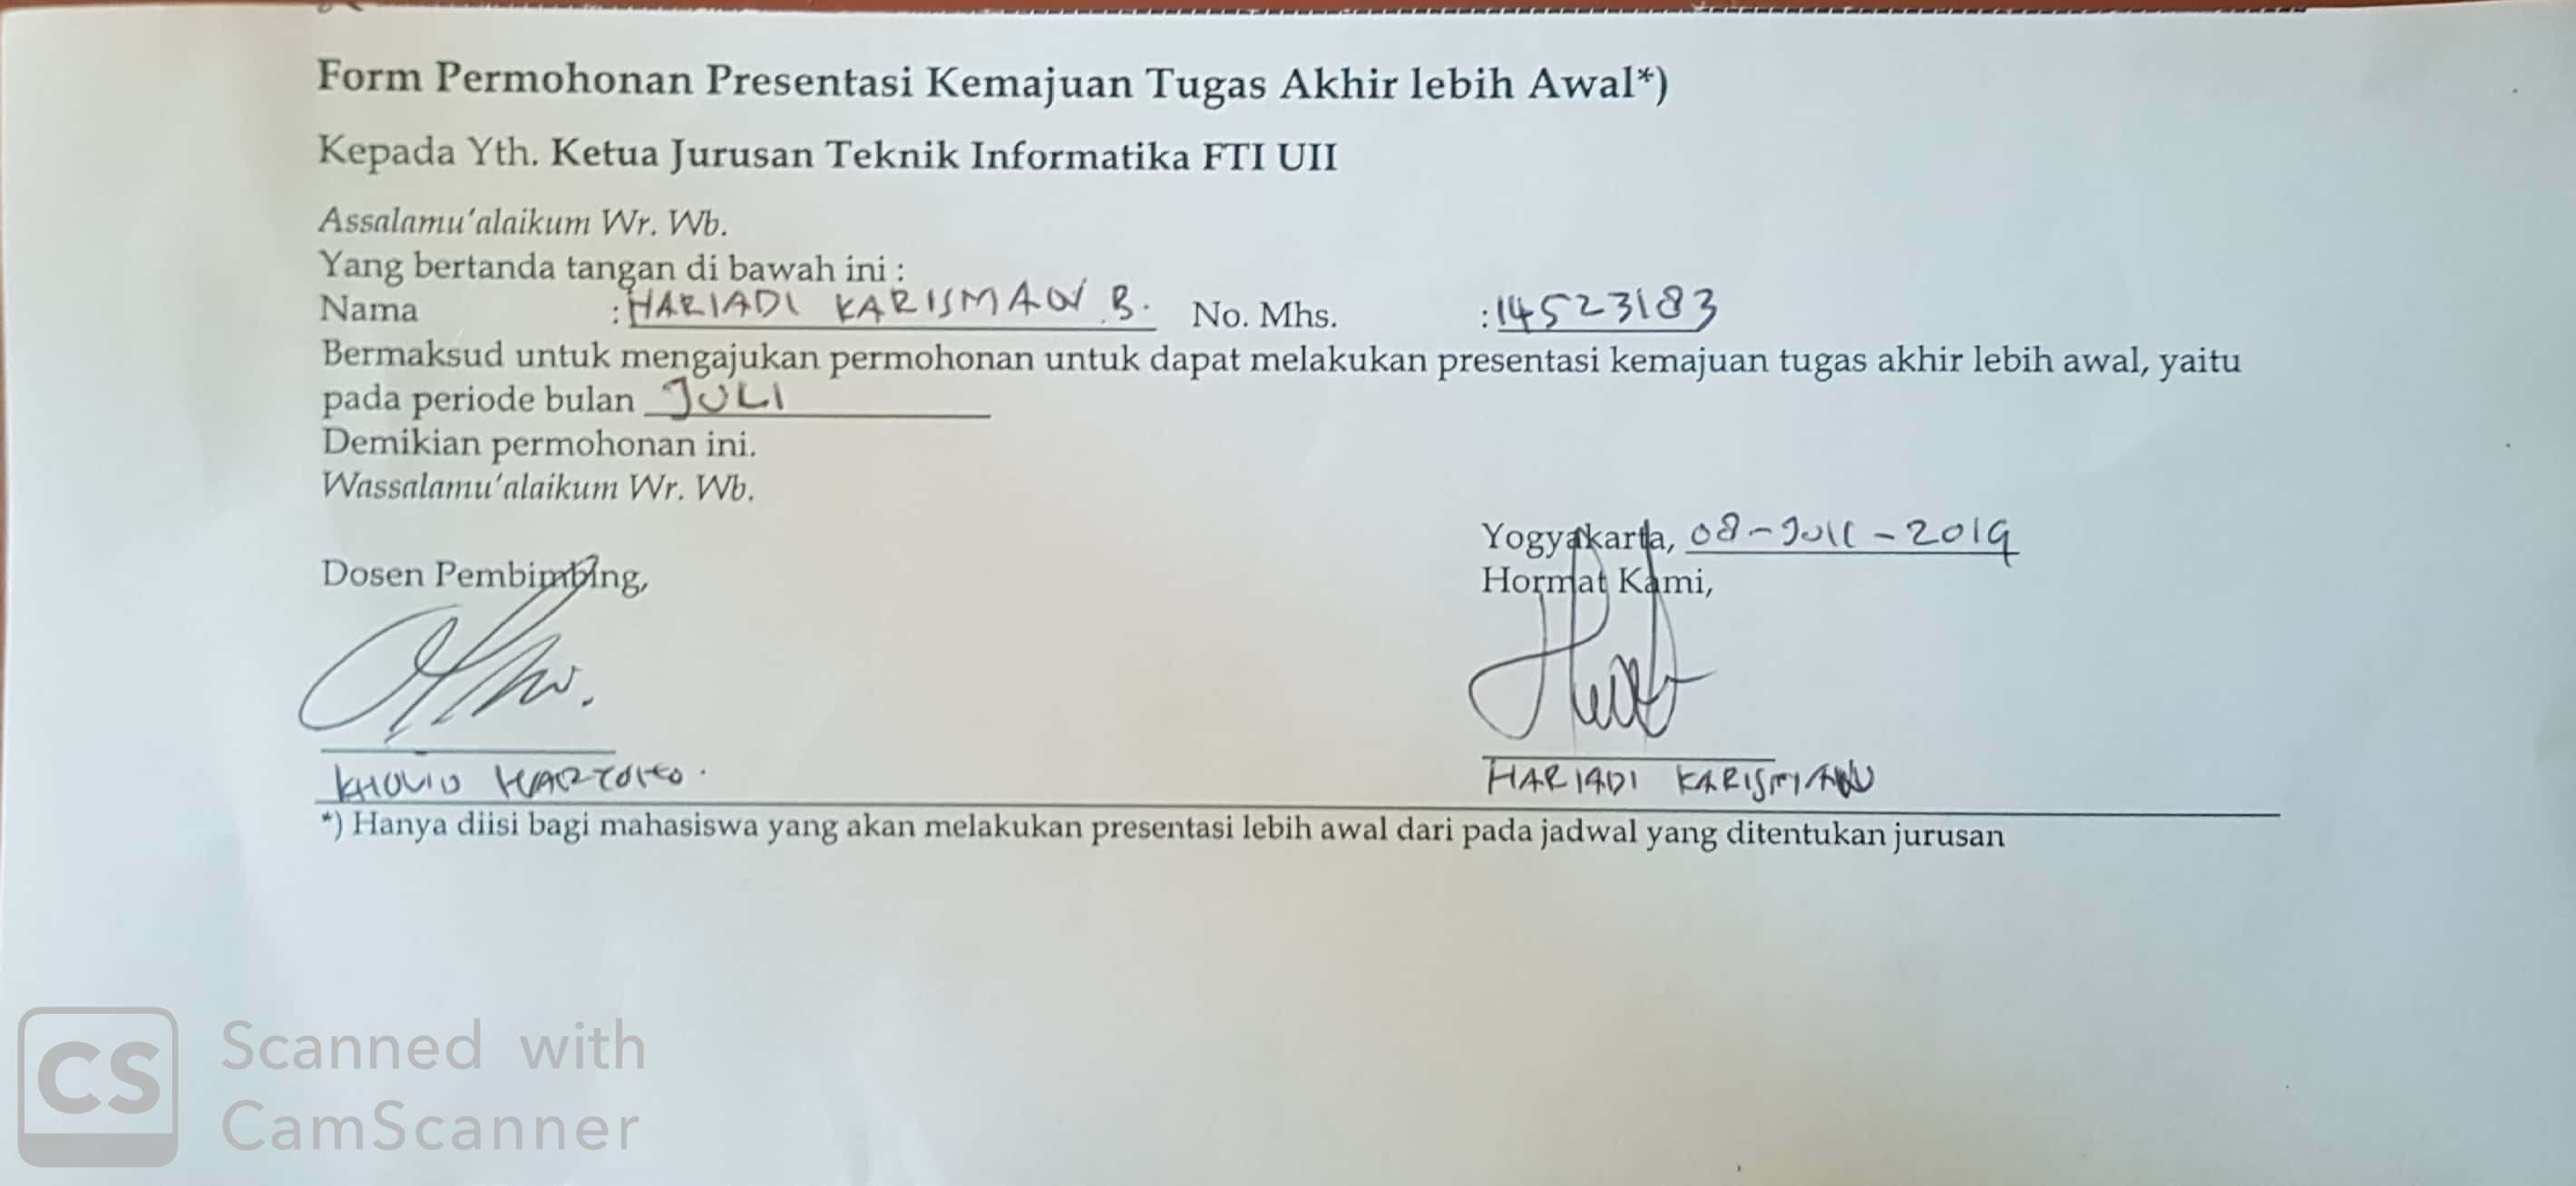 Form Permohonan Presentasi Kemajuan Tugas Akhir lebih Awal*)
Kepada Yth. Ketua Jurusan Teknik Informatika FTI UII
Assalamu'alaikum Wr. Wb.
Yang bertanda tangan di bawah ini :
Nama : HARIADI KARISMAN B. No. Mhs. : 14523183
Bermaksud untuk mengajukan permohonan untuk dapat melakukan presentasi kemajuan tugas akhir lebih awal, yaitu
pada periode bulan JULI
Demikian permohonan ini.
Wassalamu'alaikum Wr. Wb.
Yogyakarta, 08-Juli-2019
Dosen Pembimbing,
Hormat Kami,
KHOLID HARYONO.
HARIADI KARISMAN
*) Hanya diisi bagi mahasiswa yang akan melakukan presentasi lebih awal dari pada jadwal yang ditentukan jurusan
CS Scanned with
CamScanner